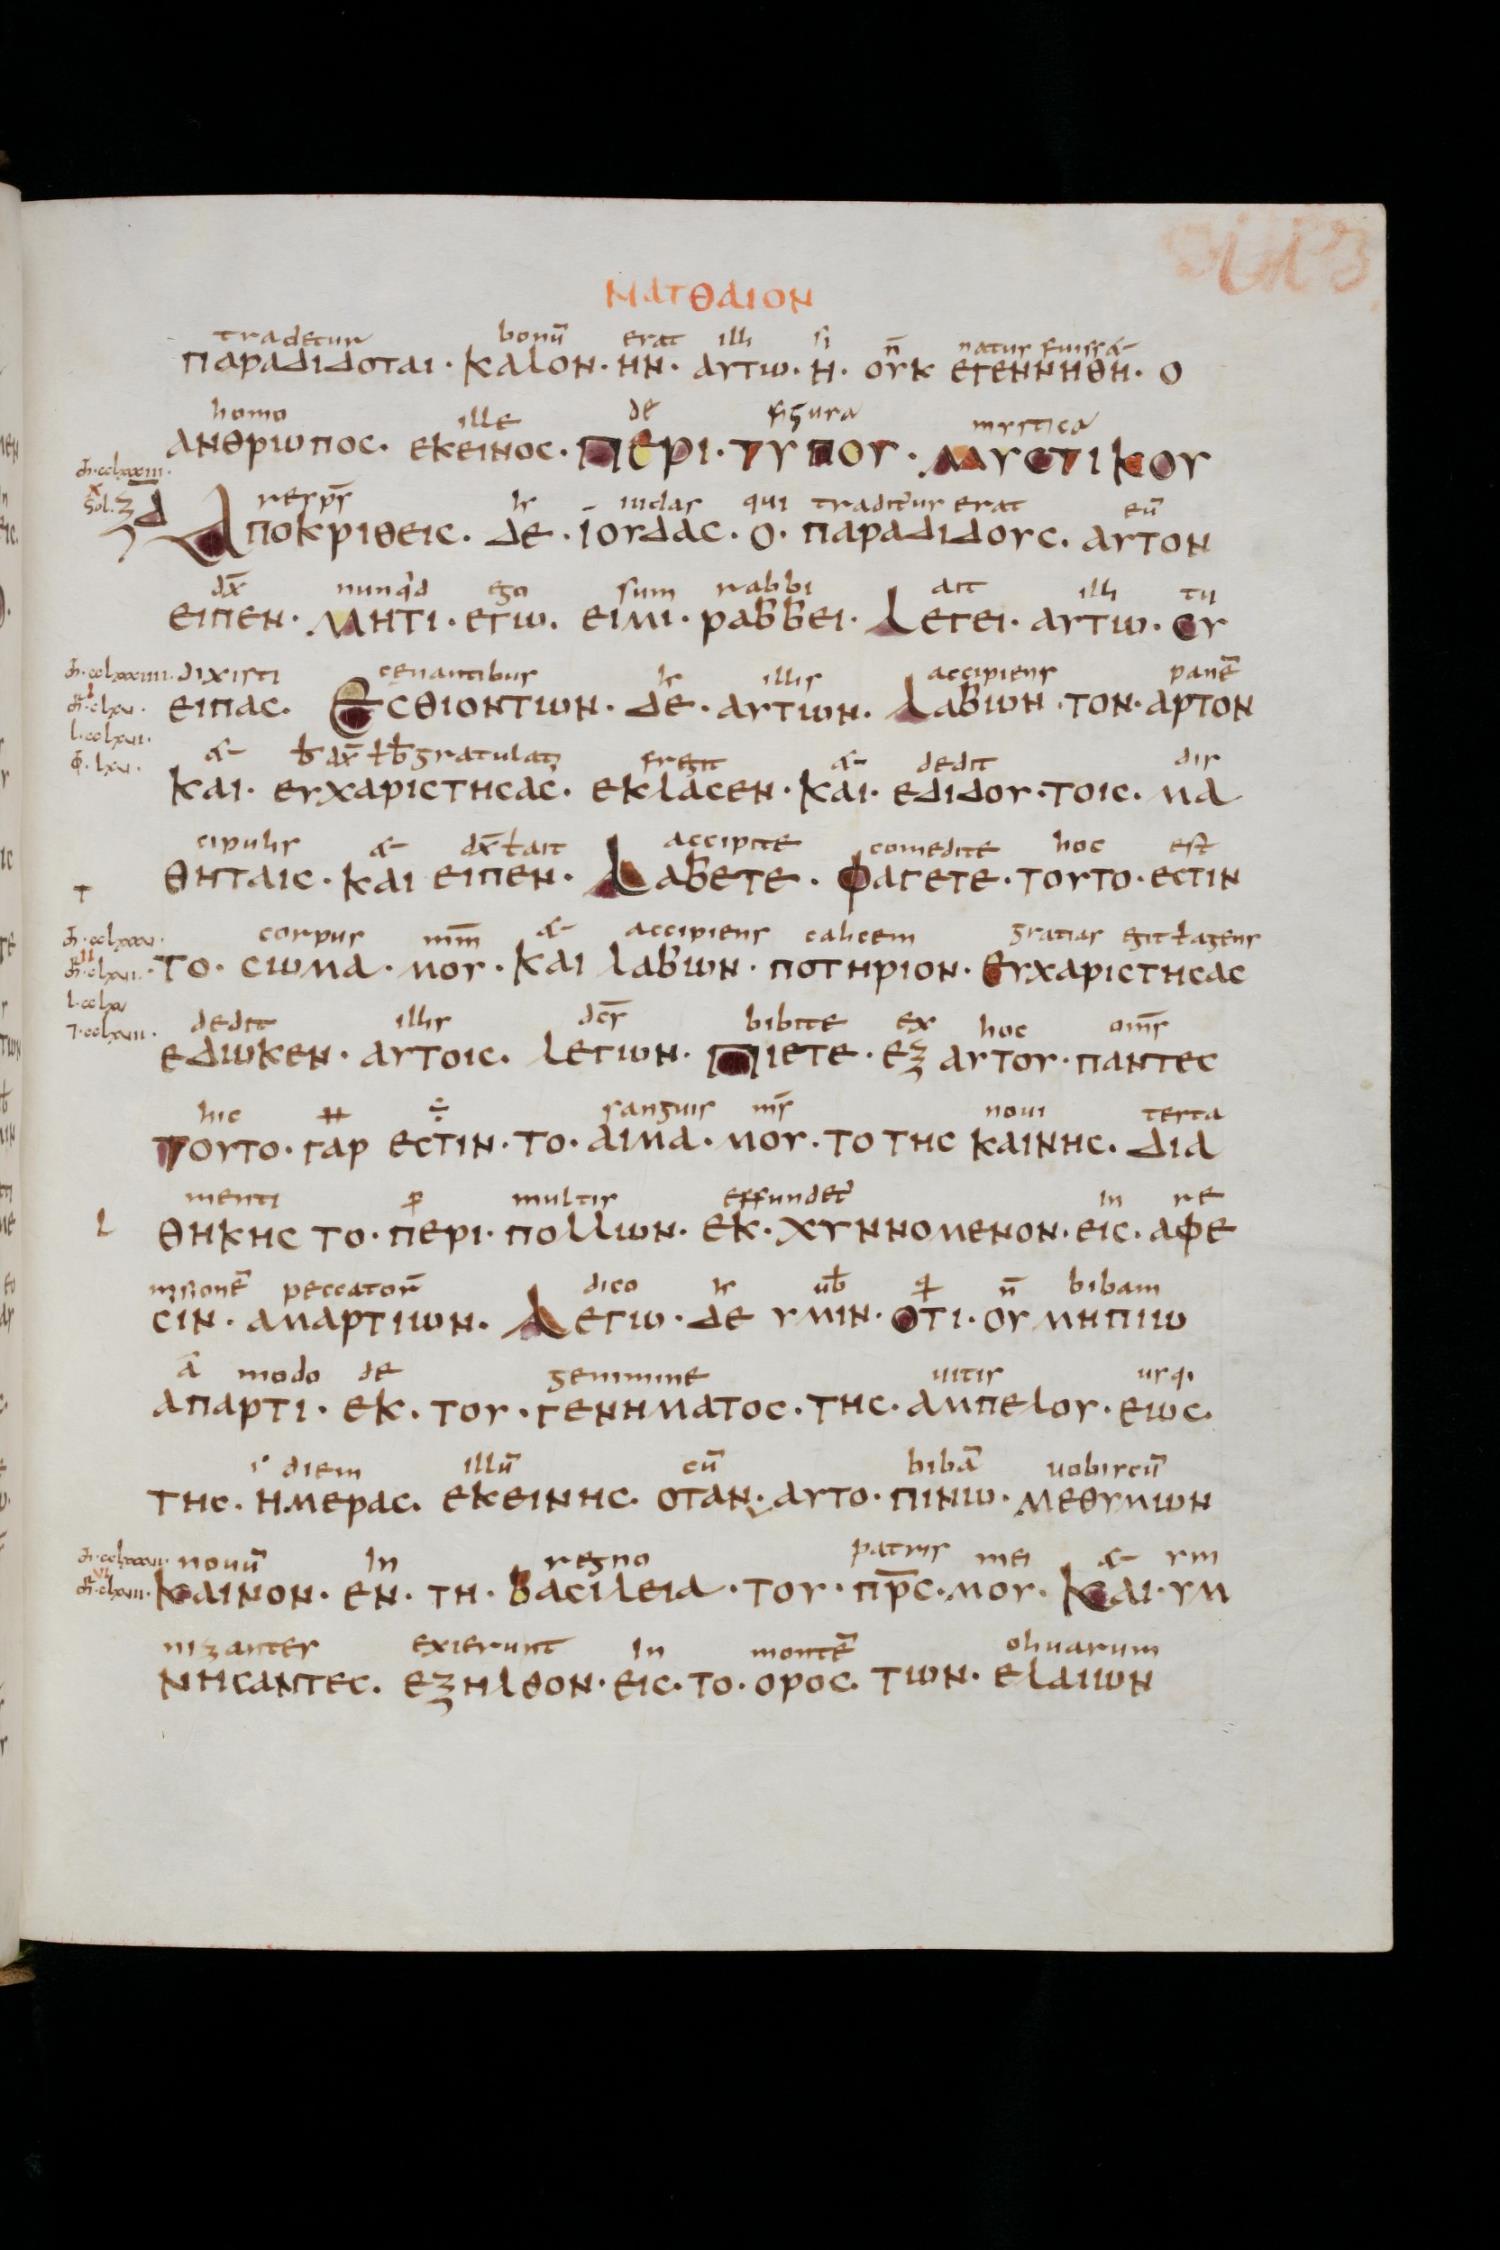 ΜΑΤΘΑΙΟΝ
tradetur bonū erat illi si n̄ natus fuiss&
ΠΑΡΑΔΙΔΟΤΑΙ· ΚΑLΟΝ· ΗΝ· ΑΥΤΩ· Η· ΟΥΚ ΕΓΕΝΝΗΘΗ· Ο
homo ille de figura mystica
ΑΝΘΡΩΠΟC· ΕΚΕΙΝΟC· ΠΕΡΙ· ΤΥΠΟΥ· ΜΥCΤΙΚΟΥ
resps̄ iudas qui traditur' erat eū
ΑΠΟΚΡΙΘΕΙC· ΔΕ· ΙΟΥΔΑC· Ο· ΠΑΡΑΔΙΔΟΥC· ΑΥΤΟΝ
dx̄ nunqd ego sum rabbi ait illi tu
ΕΙΠΕΝ· ΜΗΤΙ· ΕΓΩ· ΕΙΜΙ· ΡΑΒΒΕΙ· LΕΓΕΙ· ΑΥΤΩ· CΥ
dixisti cenantibus illis accipiens panē
ΕΙΠΑC· ΕCΘΙΟΝΤΩΝ· ΔΕ· ΑΥΤΩΝ· LΑΒΩΝ· ΤΟΝ· ΑΡΤΟΝ
& fregit & dedit dis
ΚΑΙ· ΕΥΧΑΡΙCΤΗCΑC· ΕΚLΑCΕΝ· ΚΑΙ· ΕΔΙΔΟΥ· ΤΟΙC· ΜΑ
cipulis & dx̄ ł ait accipite comedite hoc est
ΘΗΤΑΙC· ΚΑΙ ΕΙΠΕΝ· LΑΒΕΤΕ· ΦΑΓΕΤΕ· ΤΟΥΤΟ· ΕCΤΙΝ
corpus mm̄ & accipiens calicem gratias egit ł agens
ΤΟ· CΩΜΑ· ΜΟΥ· ΚΑΙ LΑΒΩΝ· ΠΟΤΗΡΙΟΝ· ΕΥΧΑΡΙCΤΗCΑC
dedit illis dcs̄ bibite ex hoc oms̄
ΕΔΩΚΕΝ· ΑΥΤΟΙC· LΕΓΩΝ· ΠΙΕΤΕ· ΕΞ ΑΥΤΟΥ· ΠΑΝΤΕC
hic ÷ sanguis ms̄ noui testa
ΤΟΥΤΟ· ΓΑΡ ΕCΤΙΝ· ΤΟ· ΑΙΜΑ· ΜΟΥ· ΤΟ ΤΗC ΚΑΙΝΗC· ΔΙΑ
menti p multis effundet' in re
ΘΗΚΗC ΤΟ· ΠΕΡΙ· ΠΟLLΩΝ· ΕΚ· ΧΥΝΝΟΜΕΝΟΝ· ΕΙC· ΑΦΕ
misionē peccatorū dico n̄ bibam
CΙΝ· ΑΜΑΡΤΙΩΝ· LΕΓΩ· ΔΕ ΥΜΙΝ· ΟΤΙ· ΟΥ ΜΗΠΙΩ
a modo de genimine uitis usq·
ΑΠΑΡΤΙ· ΕΚ· ΤΟΥ· ΓΕΝΗΜΑΤΟC· ΤΗC· ΑΜΠΕLΟΥ· ΕΩC·
diem illū cū bibā uobiscū
ΤΗC· ΗΜΕΡΑC· ΕΚΕΙΝΗC· ΟΤΑΝ· ΑΥΤΟ· ΠΙΝΩ· ΜΕΘΥΜΩΝ
nouū in regno patris mei & ym
ΚΑΙΝΟΝ· ΕΝ· ΤΗ· ΒΑCΙLΕΙΑ· ΤΟΥ· ΠΡ̅C· ΜΟΥ· ΚΑΙ· ΥΜ
nizantes exierunt in montē oliuarum
ΝΗCΑΝΤΕC· ΕΞΗLΘΟΝ· ΕΙC· ΤΟ· ΟΡΟC· ΤΩΝ· ΕLΑΙΩΝ